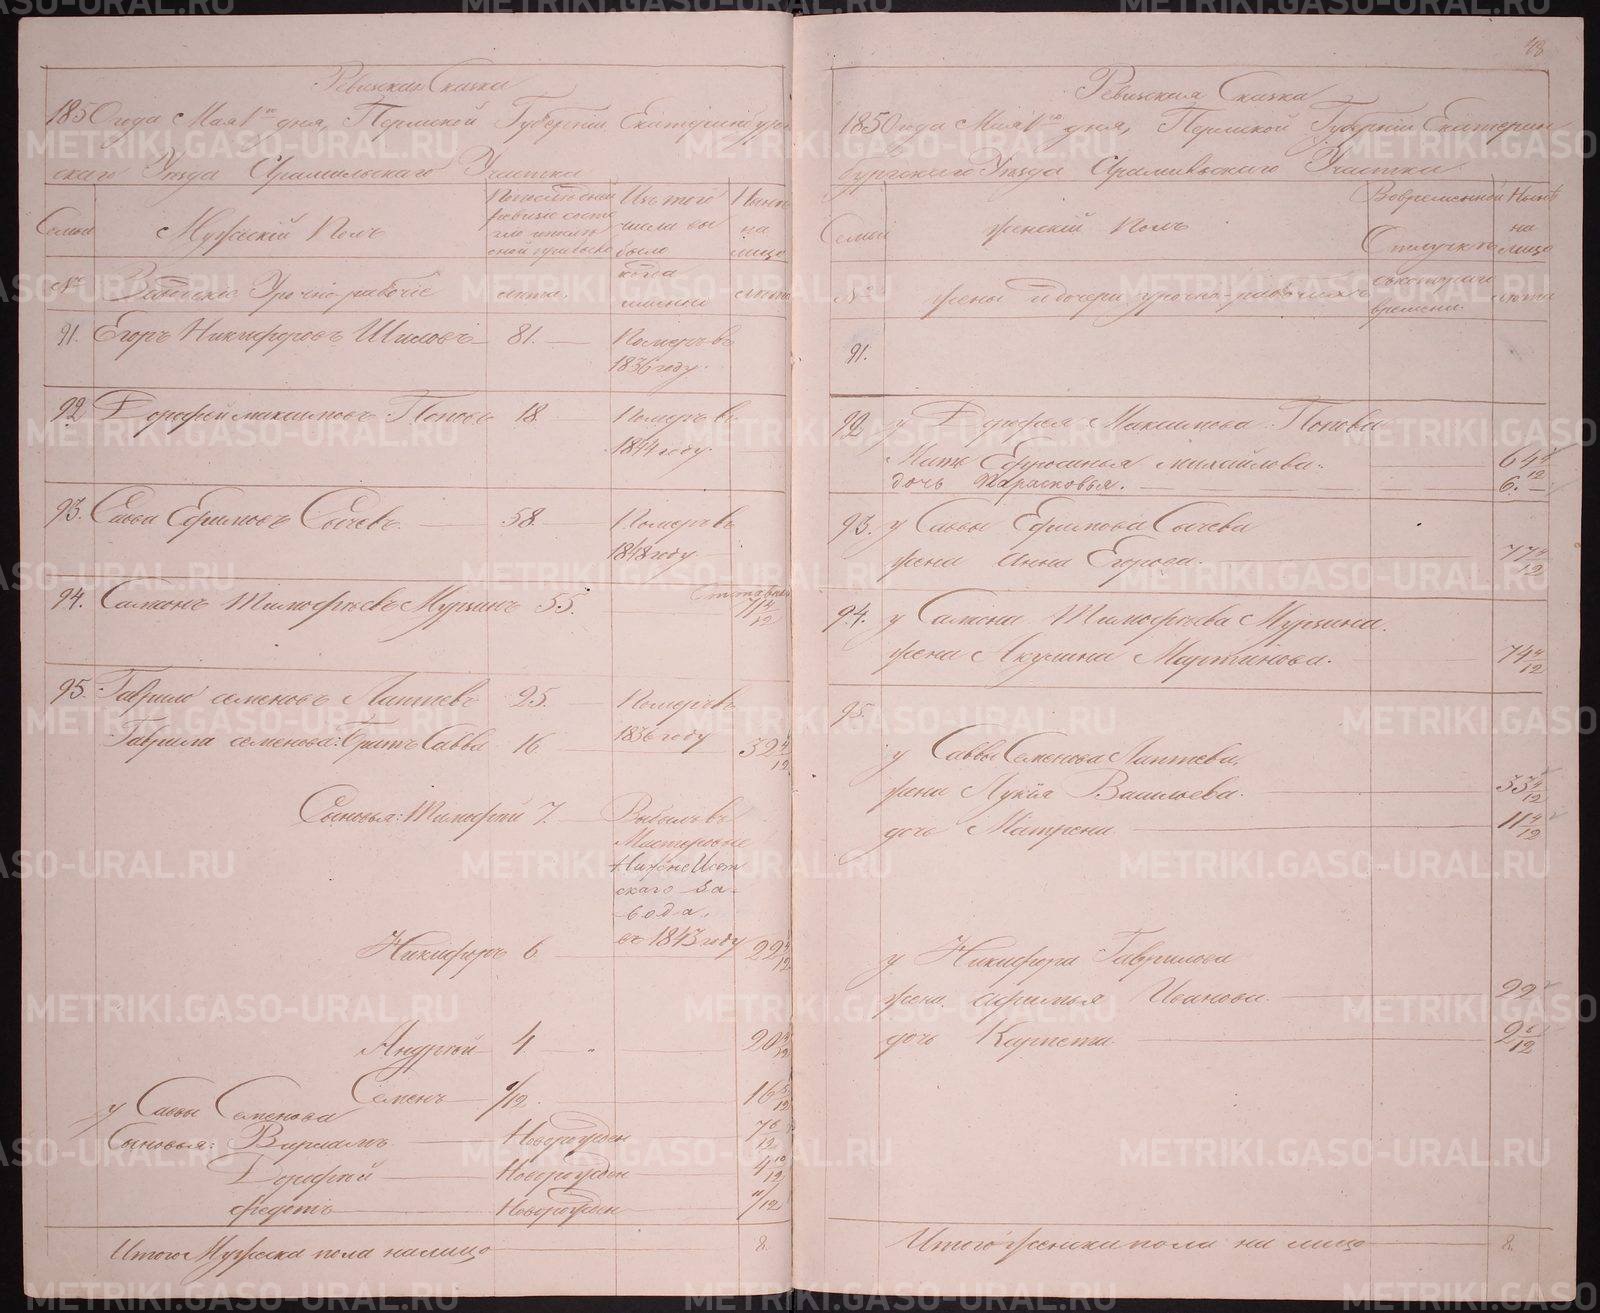 Ревизская Сказка
1850 года Мая 1го дня, Пермской Губернии Екатеринбург
скаго Уезда Арамильскаго Участка
Семьи
Мужескій Полъ
Изъ того
числа вы
было
когда
именно
Ныне
на
лицо
лета
№
Заводскіе Урочно-рабочіе
лета.
91. Егоръ Никифоровъ Шиловъ 81. Померъ въ
1836 году.
92 Дорофей Максимовъ Поповъ 18. Померъ въ
1844 году.
93. Савва Ефимовъ Сычевъ. 58. Померъ въ
1848 году
94. Самонъ Тимофеевъ Мурзинъ 55. 71 4/12
95. Гаврило Семеновъ Лаптевъ 25. Померъ въ
1836 году
Гаврила Семенова: Братъ Савва 16 32 4/12
Сыновья: Тимофей 7. Выбылъ въ
Мастеровые
Нижне Исет
скаго За-
вода.
въ 1843 году
Никифоръ 6 22 4/12
Андрей 4 20
Семенъ /12. 16
у Саввы Семенова
Сыновья: Варламъ Новорожден 7 6/12
Дорофей Новорожден 4 10/12
Федотъ Новорожден 11/12
Итого Мужеска пола налицо 8.
48
Ревизская Сказка
1850 года Мая 1го дня, Пермской Губерніи Екатерин
бургскаго Уезда Арамильскаго Участка
Семьи
женскій Полъ
Во временной
Отлучке
съ котораго
времени.
Ныне
на
лицо
лета
№
жены и дочери урочно-рабочихъ
91.
92 у Дорофея Максимова Попова
Мать Ефросинья Михайлова. 64 4/12
дочь Парасковья. 6.
93. у Саввы Ефимова Сычева
жена Анна Егорова. 77 4/12
94. у Самона Тимофеева Мурзина.
жена Акулина Мартинова. 74 4/12
95.
у Саввы Семенова Лаптева.
жена Лукія Васильева. 33 4/12
дочь Матрена 11 4/12
у Никифора Гаврилова
жена Афимья Иванова. 22
дочь 2 6/12
Итого женска пола на лицо 8.
METRIKI.GASO-URAL.RU